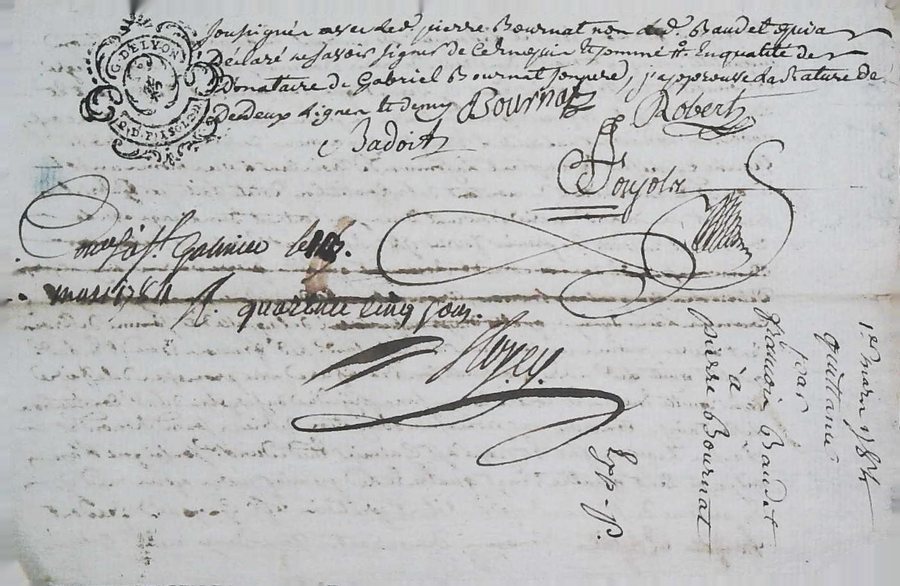 G. DE LYON
soussigné avec led. pierre Bournat non led. Baudet qui a
Déclaré ne savoir signer de Ce et sommé en qualité de
Donataire de Gabriel Bournat son pere, j'approuve la Rature de
De deux Lignes et demy Bournat Robert
Badoit
Soujolx
Galmier le
mars 1784 R. quarante cinq sous.
1er mars 1784
quittance
par
françois Baudet
à
pierre Bournat
Exp. P.